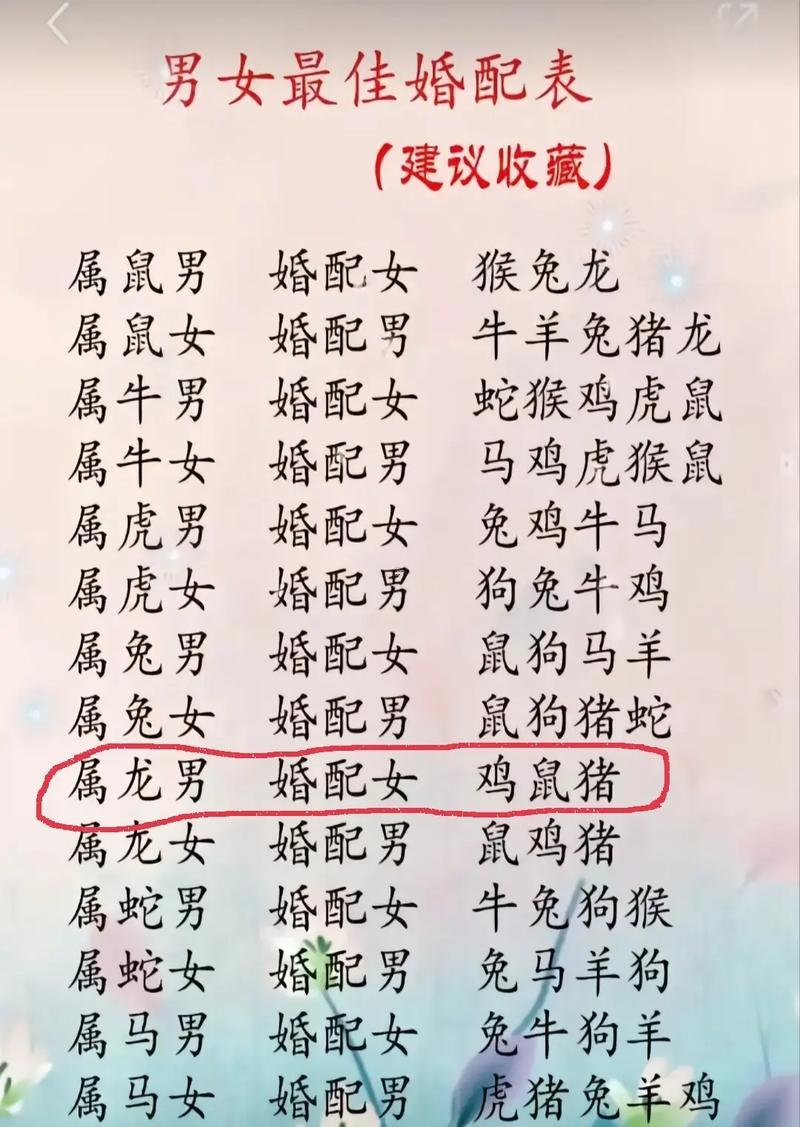 男女最佳婚配表
(建议收藏)
属鼠男 婚配女 猴兔龙
属鼠女 婚配男 牛羊兔猪龙
属牛男 婚配女 蛇猴鸡虎鼠
属牛女 婚配男 马鸡虎猴鼠
属虎男 婚配女 兔鸡牛马
属虎女 婚配男 狗兔牛鸡
属兔男 婚配女 鼠狗马羊
属兔女 婚配男 鼠狗猪蛇
属龙男 婚配女 鸡鼠猪
属龙女 婚配男 鼠鸡猪
属蛇男 婚配女 牛兔狗猴
属蛇女 婚配男 兔马羊狗
属马男 婚配女 兔牛狗羊
属马女 婚配男 虎猪兔羊鸡